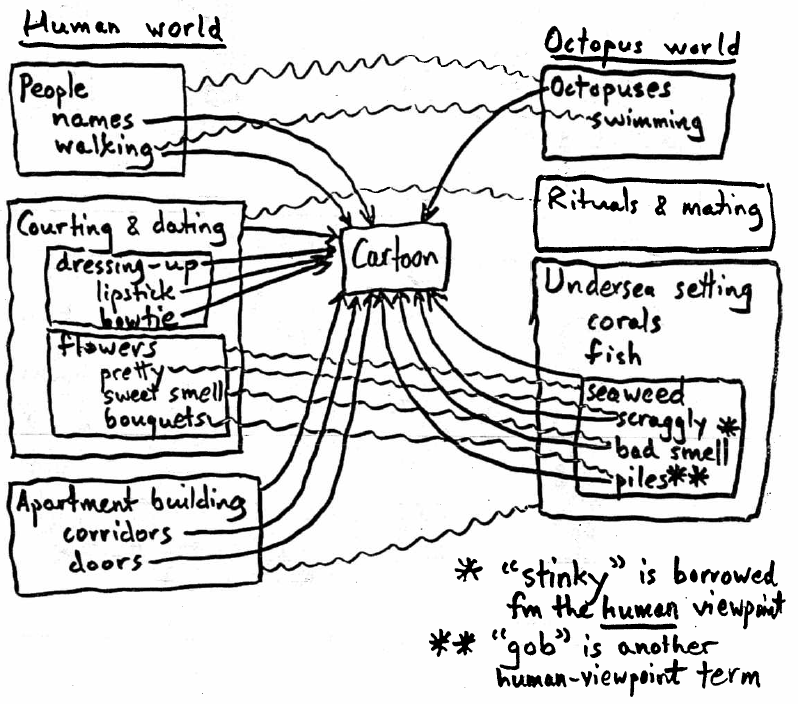 Human world
People
names
walking
Courting & dating
dressing-up
lipstick
bowtie
flowers
pretty
sweet smell
bouquets
Apartment building
corridors
doors
Cartoon
Octopus world
Octopuses
swimming
Rituals & mating
Undersea setting
corals
fish
seaweed
scraggly *
bad smell
piles**
* "stinky" is borrowed
fm the human viewpoint
** "gob" is another
human-viewpoint term